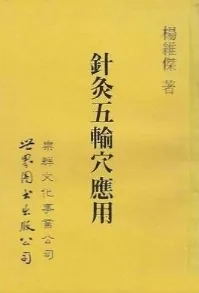 楊維傑 著
針灸五輸穴應用
樂群文化事業公司
世界图书出版公司